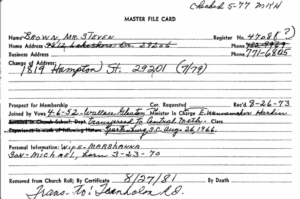 Checked 5-77 MTH
MASTER FILE CARD
Name BROWN, MR. STEVEN Register No. 4708 (?)
Home Address 3412 Lakeshore Dr. 29206 Phone
Business Address Phone 771-6805
Change of Address:
1819 Hampton St. 29201 (7/79)
Prospect for Membership Cor. Requested Rec'd 8-26-73
Joined by Vows 4-6-52 Wallace Minister in Charge Hardin
Enrolled in Church School: Dept. Transferred to Central Meth. Class
Experience in work of following Nature: Spartanburg S.C. Aug 26, 1966.
Personal Information: WIFE - MARSHANNA
SON - MICHAEL, born 3-23-70
Removed from Church Roll; By Certificate 8/27/81 By Death
Trans. to: